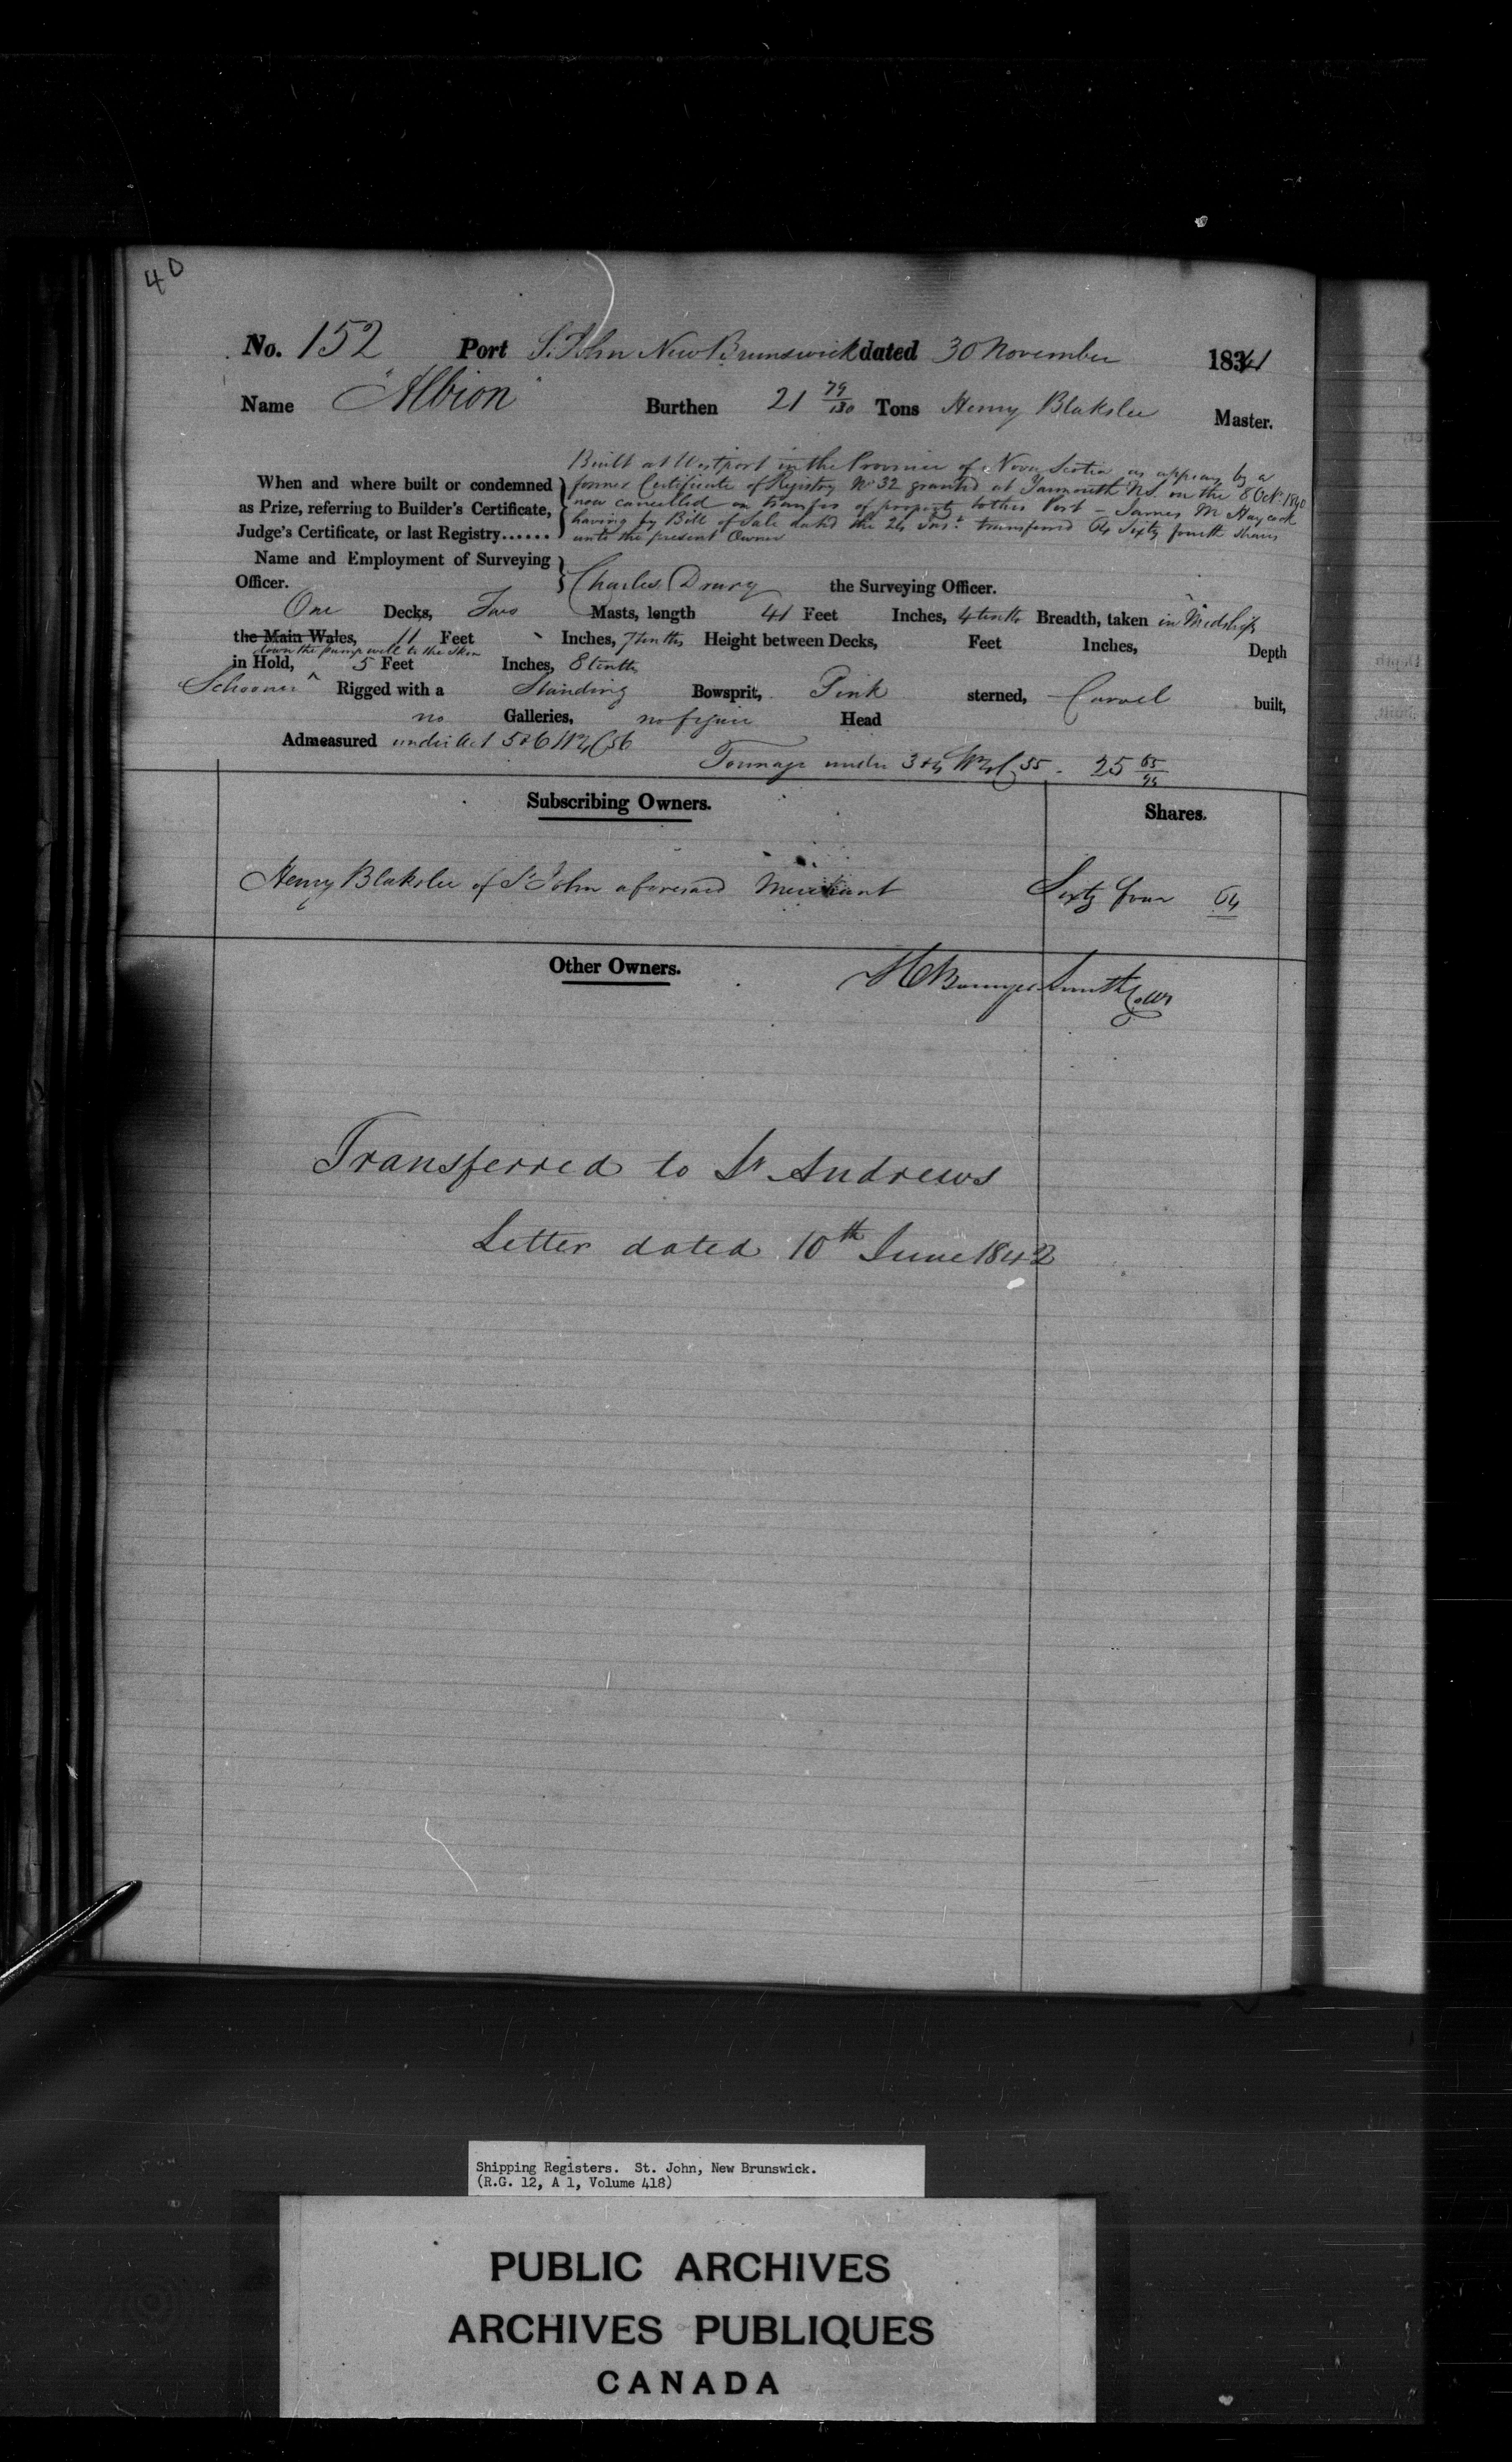 40
No. 152 Port St. John New Brunswick dated 30 November 1841
Name "Albion" Burthen 21 79/130 Tons Henry Blakslee Master.
Built at Westport in the Province of Nova Scotia as appears by a
When and where built or condemned former Certificate of Registry No 32 granted at Yarmouth N.S. on the 8 Octr 1840
as Prize, referring to Builder's Certificate, now cancelled on transfer of property to this Port - James M Haycock
Judge's Certificate, or last Registry...... having by Bill of Sale dated the 24 Inst transferred 64 Sixty fourth Shares
unto the present Owner
Name and Employment of Surveying
Officer. Charles Drury the Surveying Officer.
One Decks, Two Masts, length 41 Feet Inches, 4 tenths Breadth, taken in Midships
the Main Wales, 11 Feet Inches, 7 tenths Height between Decks, Feet Inches, Depth
down the pump well to the Skin
in Hold, 5 Feet Inches, 8 tenths
Schooner Rigged with a Standing Bowsprit, Pink sterned, Carvel built,
no Galleries, no figure Head
Admeasured under Act 5 & 6 Wm 4 C 56
Tonnage under 3 & 4 Wm 4 C 55 - 25 65/94
Subscribing Owners. Shares.
Henry Blakslee of St John aforesaid Merchant Sixty four 64
Other Owners.
Smith
Transferred to St Andrews
Letter dated 10th June 1842
Shipping Registers. St. John, New Brunswick.
(R.G. 12, A 1, Volume 418)
PUBLIC ARCHIVES
ARCHIVES PUBLIQUES
CANADA